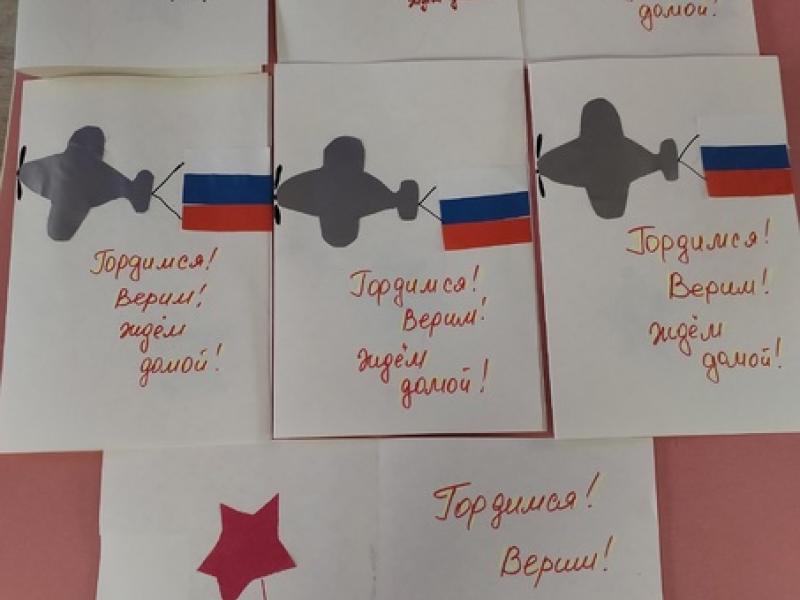 домой!
Гордимся!
Верим!
ждём
домой!
Гордимся!
Верим!
ждём
домой!
Гордимся!
Верим!
ждём
домой!
Гордимся!
Верим!